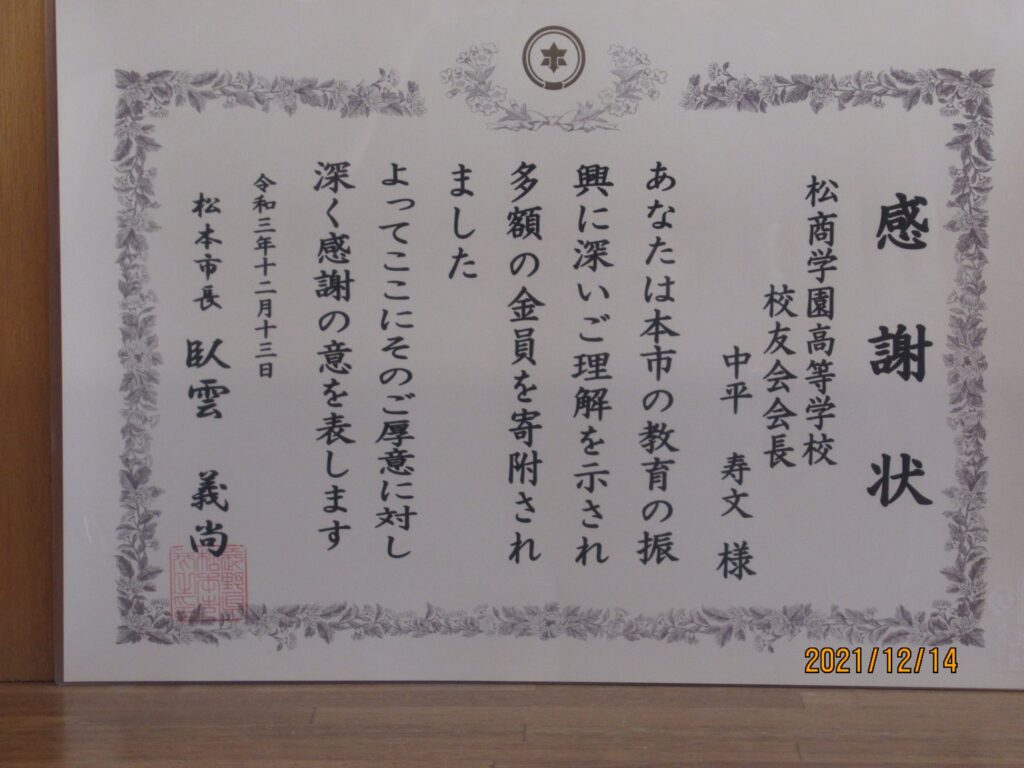 感謝状
松商学園高等学校
校友会会長
中平 寿文 様
あなたは本市の教育の振
興に深いご理解を示され
多額の金員を寄附され
ました
よってここにそのご厚意に対し
深く感謝の意を表します
令和三年十二月十三日
松本市長 臥雲 義尚
2021/12/14